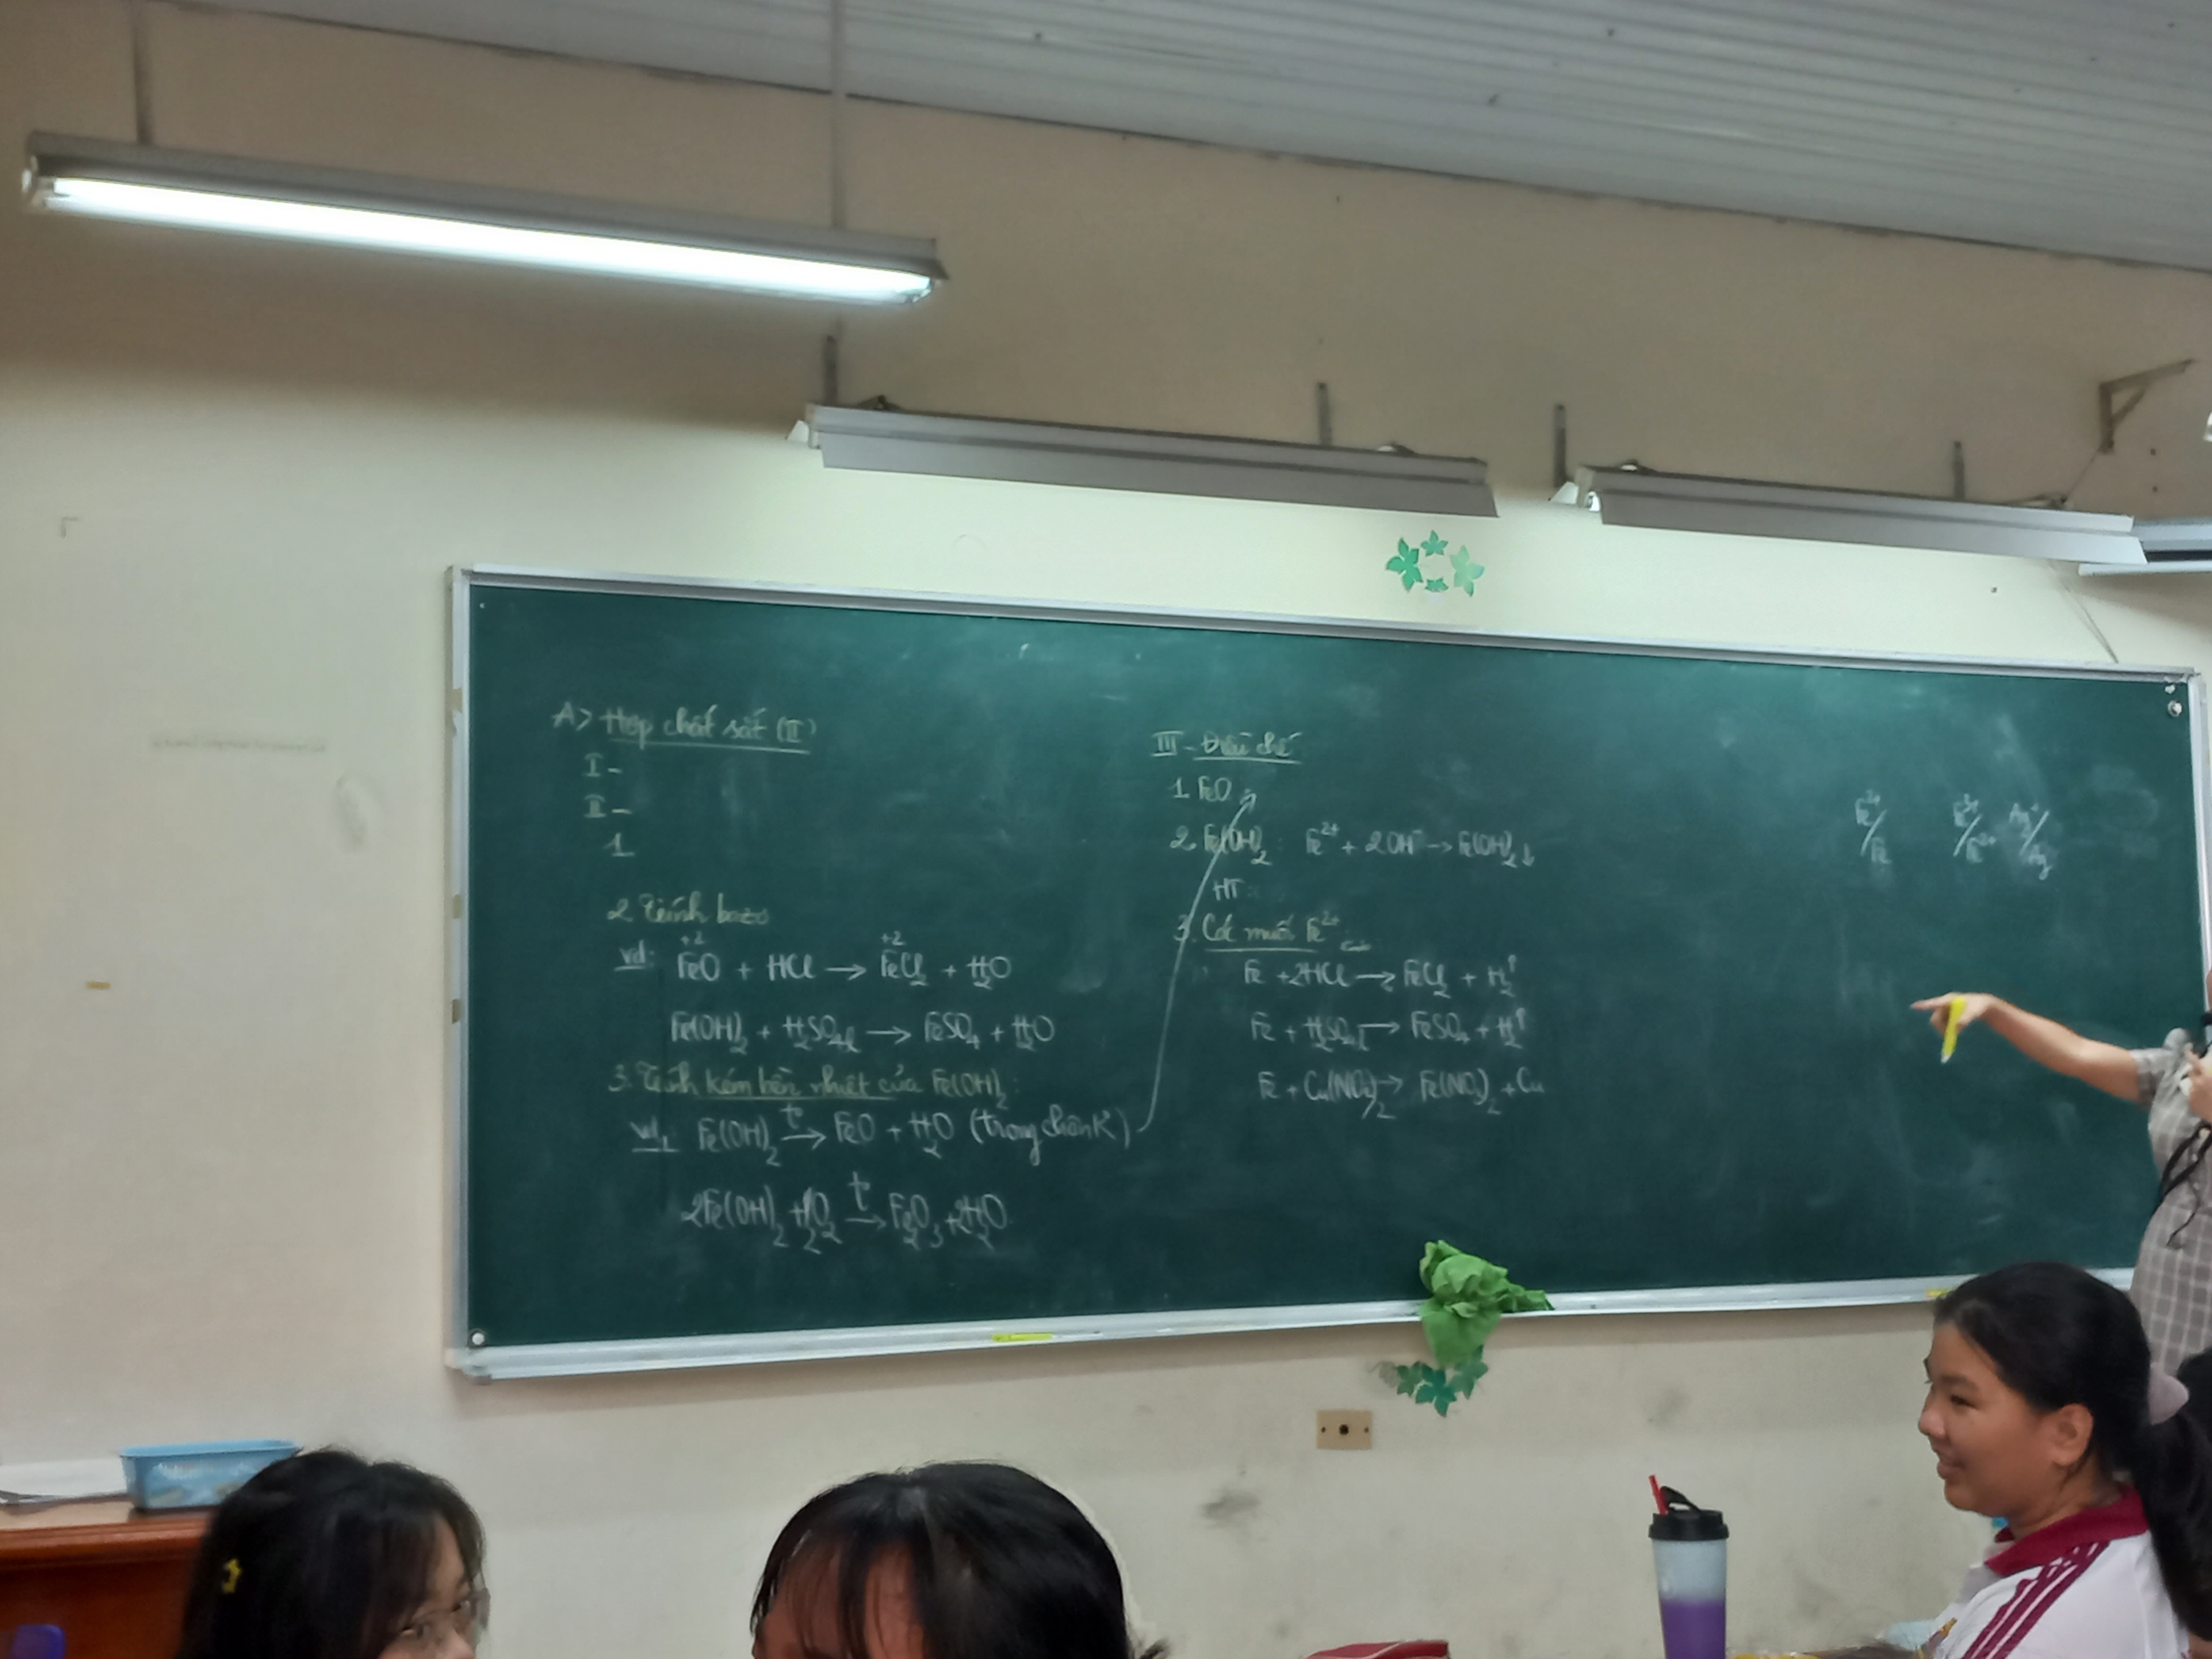 A> Hợp chất sắt (II)
I-
II-
1
2. Tính bazơ
+2 +2
vd: FeO + HCl → FeCl₂ + H₂O
Fe(OH)₂ + H₂SO₄l → FeSO₄ + H₂O
3. Tính kém bền nhiệt của Fe(OH)₂:
vd: Fe(OH)₂ t°→ FeO + H₂O (trong chân K)
2Fe(OH)₂ + ½O₂ t°→ Fe₂O₃ + 2H₂O
III - Điều chế
1. FeO
2. Fe(OH)₂: Fe²⁺ + 2OH⁻ → Fe(OH)₂↓
HT:
3. Các muối Fe²⁺
Fe + 2HCl → FeCl₂ + H₂↑
Fe + H₂SO₄l → FeSO₄ + H₂↑
Fe + Cu(NO₃)₂ → Fe(NO₃)₂ + Cu
Fe²⁺/Fe Fe³⁺/Fe²⁺ Ag⁺/Ag